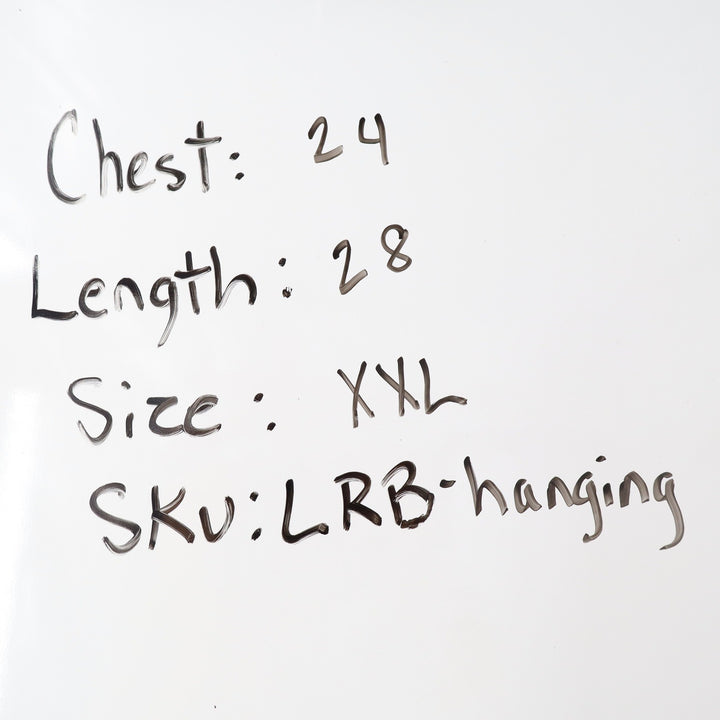 Chest: 24
Length: 28
Size: XXL
SKU: LRB-hanging